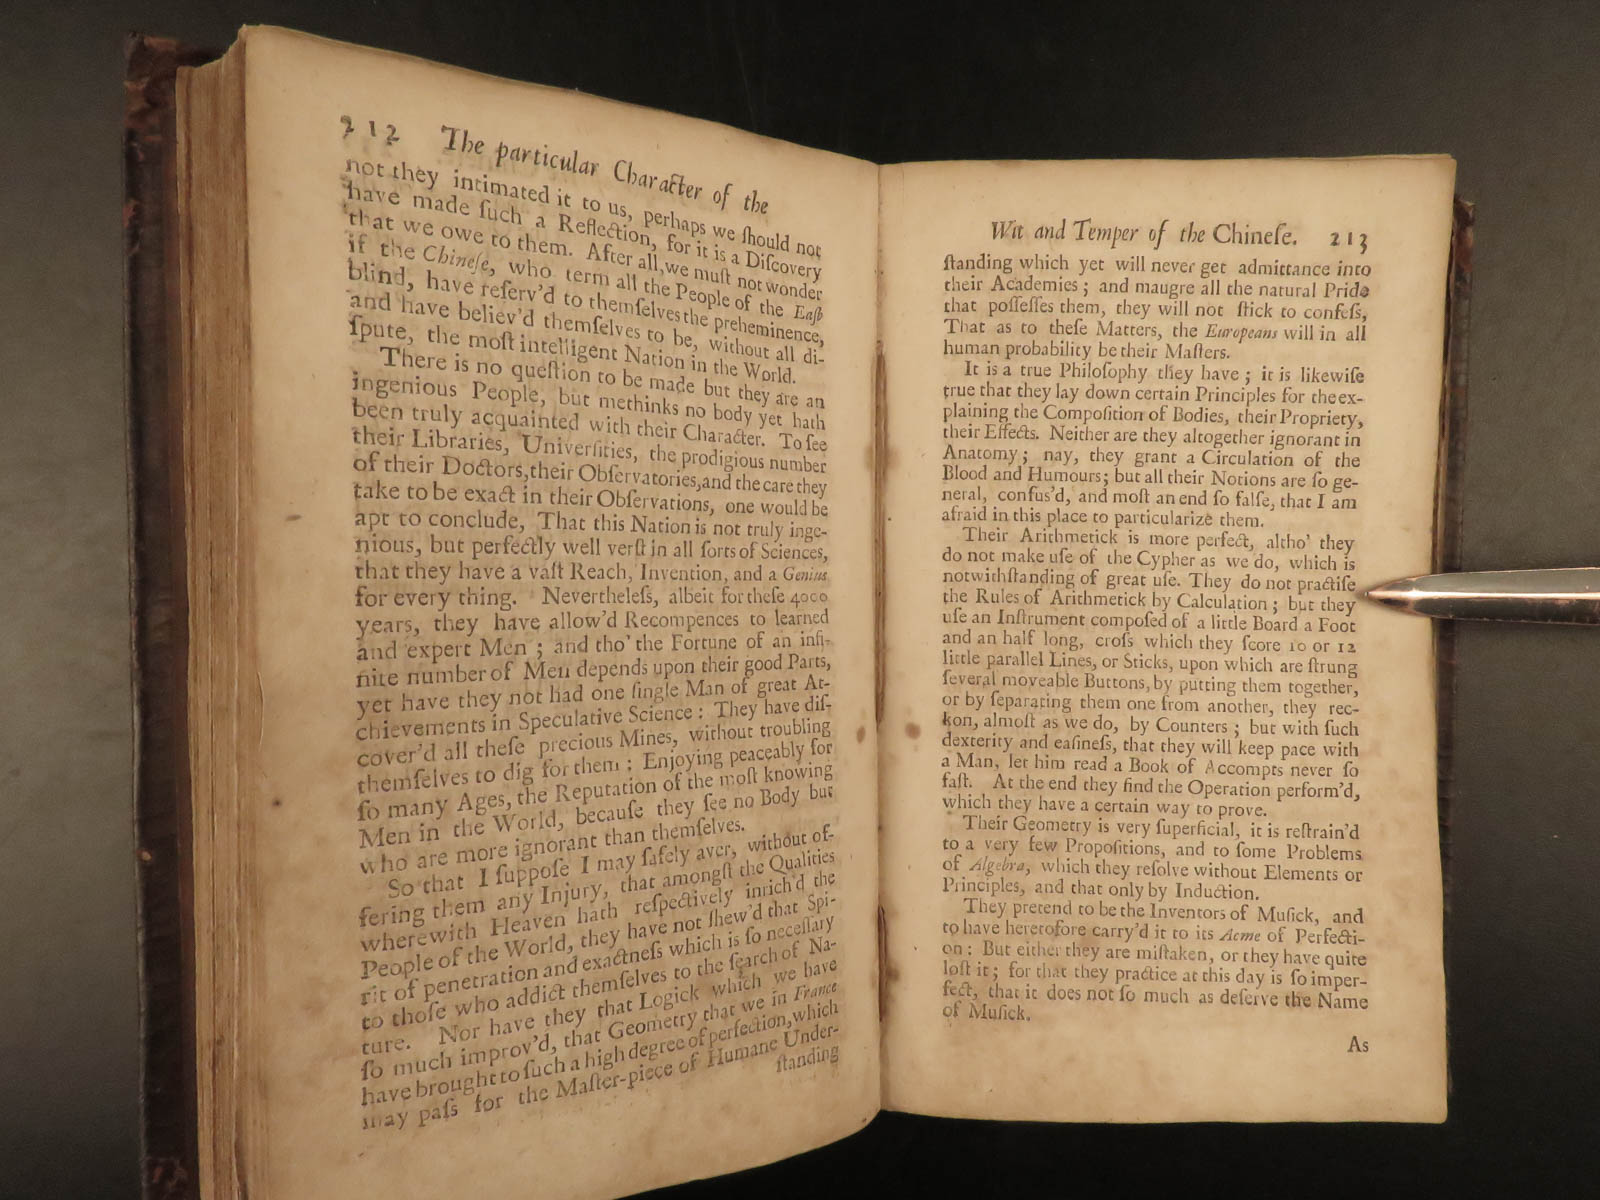 212 The particular Character of the
not they intimated it to us, perhaps we ſhould not
have made ſuch a Reflection, for it is a Diſcovery
that we owe to them. After all, we muſt not wonder
if the Chineſe, who term all the People of the Eaſt
blind, have reſerv'd to themſelves the preheminence,
and have believ'd themſelves to be, without all di-
ſpute, the moſt intelligent Nation in the World.
There is no queſtion to be made but they are an
ingenious People, but methinks no body yet hath
been truly acquainted with their Character. To ſee
their Libraries, Univerſities, the prodigious number
of their Doctors, their Obſervatories, and the care they
take to be exact in their Obſervations, one would be
apt to conclude, That this Nation is not truly inge-
nious, but perfectly well verſt in all ſorts of Sciences,
that they have a vaſt Reach, Invention, and a Genius
for every thing. Nevertheleſs, albeit for theſe 4000
years, they have allow'd Recompences to learned
and expert Men ; and tho' the Fortune of an infi-
nite number of Men depends upon their good Parts,
yet have they not had one ſingle Man of great At-
chievements in Speculative Science : They have diſ-
cover'd all theſe precious Mines, without troubling
themſelves to dig for them : Enjoying peaceably for
ſo many Ages, the Reputation of the moſt knowing
Men in the World, becauſe they ſee no Body but
who are more ignorant than themſelves.
So that I ſuppoſe I may ſafely aver, without of-
fering them any Injury, that amongſt the Qualities
wherewith Heaven hath reſpectively inrich'd the
People of the World, they have not ſhew'd that Spi-
rit of penetration and exactneſs which is ſo neceſſary
to thoſe who addict themſelves to the ſearch of Na-
ture. Nor have they that Logick which we have
ſo much improv'd, that Geometry that we in France
have brought to ſuch a high degree of perfection, which
may paſs for the Maſter-piece of Humane Under-
ſtanding
Wit and Temper of the Chineſe. 213
ſtanding which yet will never get admittance into
their Academies ; and maugre all the natural Pride
that poſſeſſes them, they will not ſtick to confeſs,
That as to theſe Matters, the Europeans will in all
human probability be their Maſters.
It is a true Philoſophy they have ; it is likewiſe
true that they lay down certain Principles for the ex-
plaining the Compoſition of Bodies, their Propriety,
their Effects. Neither are they altogether ignorant in
Anatomy ; nay, they grant a Circulation of the
Blood and Humours; but all their Notions are ſo ge-
neral, confus'd, and moſt an end ſo falſe, that I am
afraid in this place to particularize them.
Their Arithmetick is more perfect, altho' they
do not make uſe of the Cypher as we do, which is
notwithſtanding of great uſe. They do not practiſe
the Rules of Arithmetick by Calculation ; but they
uſe an Inſtrument compoſed of a little Board a Foot
and an half long, croſs which they ſcore 10 or 12
little parallel Lines, or Sticks, upon which are ſtrung
ſeveral moveable Buttons, by putting them together,
or by ſeparating them one from another, they rec-
kon, almoſt as we do, by Counters ; but with ſuch
dexterity and eaſineſs, that they will keep pace with
a Man, let him read a Book of Accompts never ſo
faſt. At the end they find the Operation perform'd,
which they have a certain way to prove.
Their Geometry is very ſuperficial, it is reſtrain'd
to a very few Propoſitions, and to ſome Problems
of Algebra, which they reſolve without Elements or
Principles, and that only by Induction.
They pretend to be the Inventors of Muſick, and
to have heretofore carry'd it to its Acme of Perfecti-
on : But either they are miſtaken, or they have quite
loſt it ; for that they practice at this day is ſo imper-
fect, that it does not ſo much as deſerve the Name
of Muſick.
As